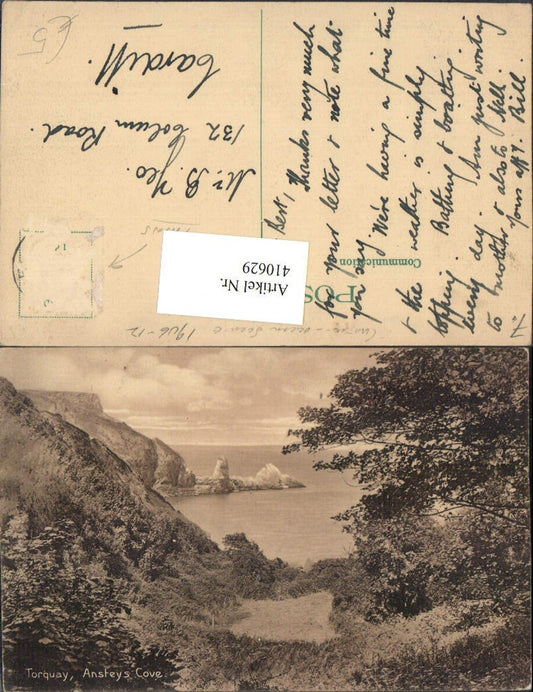 Bert,
Thanks very much
for your letter & note what
you say. We're having a fine time
& the weather is simply
topping. Bathing & boating
every day. Am just writing
to mother & also to Nell.
Yours afft. Bill.
Mr. B. Yeo.
132 Colum Road.
Cardiff.
£5
POS
Communication
Artikel Nr.
410629
1906-12
Torquay, Ansteys Cove.